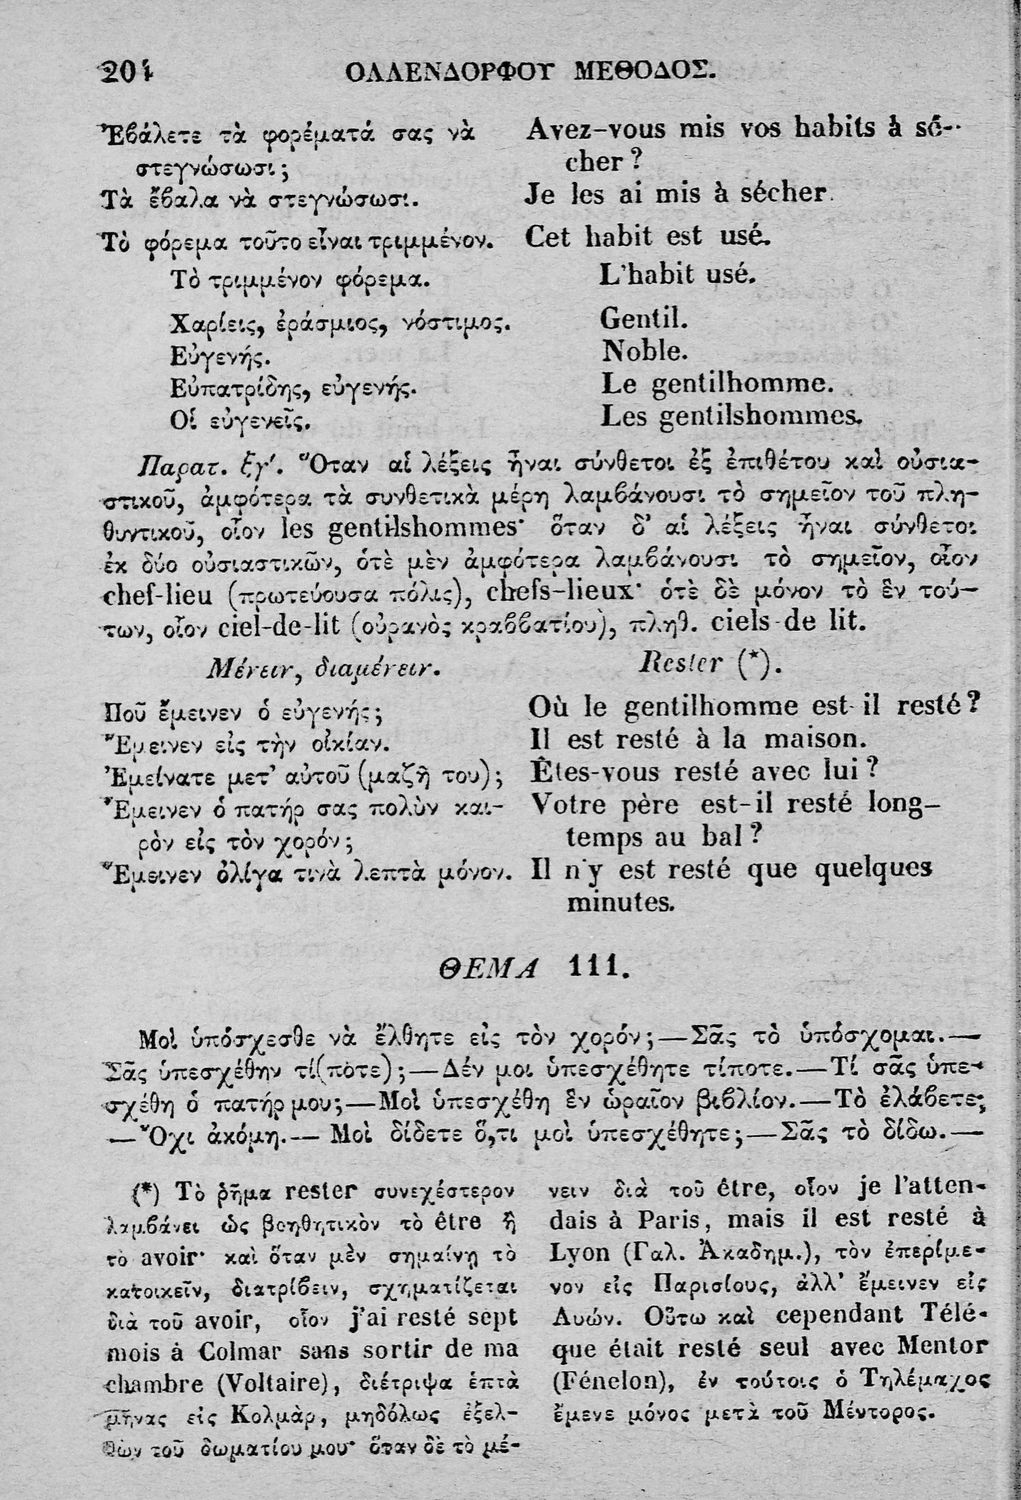 204 ΟΛΛΕΝΔΟΡΦΟΥ ΜΕΘΟΔΟΣ.
Ἐβάλετε τὰ φορέματά σας νὰ
στεγνώσωσι;
Τὰ ἔβαλα νὰ στεγνώσωσι.
Τὸ φόρεμα τοῦτο εἶναι τριμμένον.
Τὸ τριμμένον φόρεμα.
Χαρίεις, ἐράσμιος, νόστιμος.
Εὐγενής.
Εὐπατρίδης, εὐγενής.
Οἱ εὐγενεῖς.
Avez-vous mis vos habits à sé-
cher?
Je les ai mis à sécher.
Cet habit est usé.
L'habit usé.
Gentil.
Noble.
Le gentilhomme.
Les gentilshommes.
Παρατ. ξγ′. Ὅταν αἱ λέξεις ἦναι σύνθετοι ἐξ ἐπιθέτου καὶ οὐσια-
στικοῦ, ἀμφότερα τὰ συνθετικὰ μέρη λαμβάνουσι τὸ σημεῖον τοῦ πλη-
θυντικοῦ, οἷον les gentilshommes· ὅταν δ' αἱ λέξεις ἦναι σύνθετοι
ἐκ δύο οὐσιαστικῶν, ὁτὲ μὲν ἀμφότερα λαμβάνουσι τὸ σημεῖον, οἷον
chef-lieu (πρωτεύουσα πόλις), chefs-lieux· ὁτὲ δὲ μόνον τὸ ἓν τού-
των, οἷον ciel-de-lit (οὐρανὸς κραββατίου), πληθ. ciels-de lit.
Μένειν, διαμένειν.
Ποῦ ἔμεινεν ὁ εὐγενής;
Ἔμεινεν εἰς τὴν οἰκίαν.
Ἐμείνατε μετ' αὐτοῦ (μαζῆ του);
Ἔμεινεν ὁ πατήρ σας πολὺν και-
ρὸν εἰς τὸν χορόν;
Ἔμεινεν ὀλίγα τινὰ λεπτὰ μόνον.
Rester (*).
Où le gentilhomme est-il resté?
Il est resté à la maison.
Êtes-vous resté avec lui?
Votre père est-il resté long-
temps au bal?
Il n'y est resté que quelques
minutes.
ΘΕΜΑ 111.
Μοὶ ὑπόσχεσθε νὰ ἔλθητε εἰς τὸν χορόν;—Σᾶς τὸ ὑπόσχομαι.—
Σᾶς ὑπεσχέθην τί(ποτε);—Δέν μοι ὑπεσχέθητε τίποτε.—Τί σᾶς ὑπε-
σχέθη ὁ πατήρ μου;—Μοὶ ὑπεσχέθη ἓν ὡραῖον βιβλίον.—Τὸ ἐλάβετε;
—Ὄχι ἀκόμη.—Μοὶ δίδετε ὅ,τι μοὶ ὑπεσχέθητε;—Σᾶς τὸ δίδω.—
(*) Τὸ ῥῆμα rester συνεχέστερον
λαμβάνει ὡς βοηθητικὸν τὸ être ἢ
τὸ avoir· καὶ ὅταν μὲν σημαίνῃ τὸ
κατοικεῖν, διατρίβειν, σχηματίζεται
διὰ τοῦ avoir, οἷον j'ai resté sept
mois à Colmar sans sortir de ma
chambre (Voltaire), διέτριψα ἑπτὰ
μῆνας εἰς Κολμὰρ, μηδόλως ἐξελ-
θὼν τοῦ δωματίου μου· ὅταν δὲ τὸ μέ-
νειν διὰ τοῦ être, οἷον je l'atten-
dais à Paris, mais il est resté à
Lyon (Γαλ. Ἀκαδημ.), τὸν ἐπερίμε-
νον εἰς Παρισίους, ἀλλ' ἔμεινεν εἰς
Λυών. Οὕτω καὶ cependant Télé-
que était resté seul avec Mentor
(Fénelon), ἐν τούτοις ὁ Τηλέμαχος
ἔμενε μόνος μετὰ τοῦ Μέντορος.